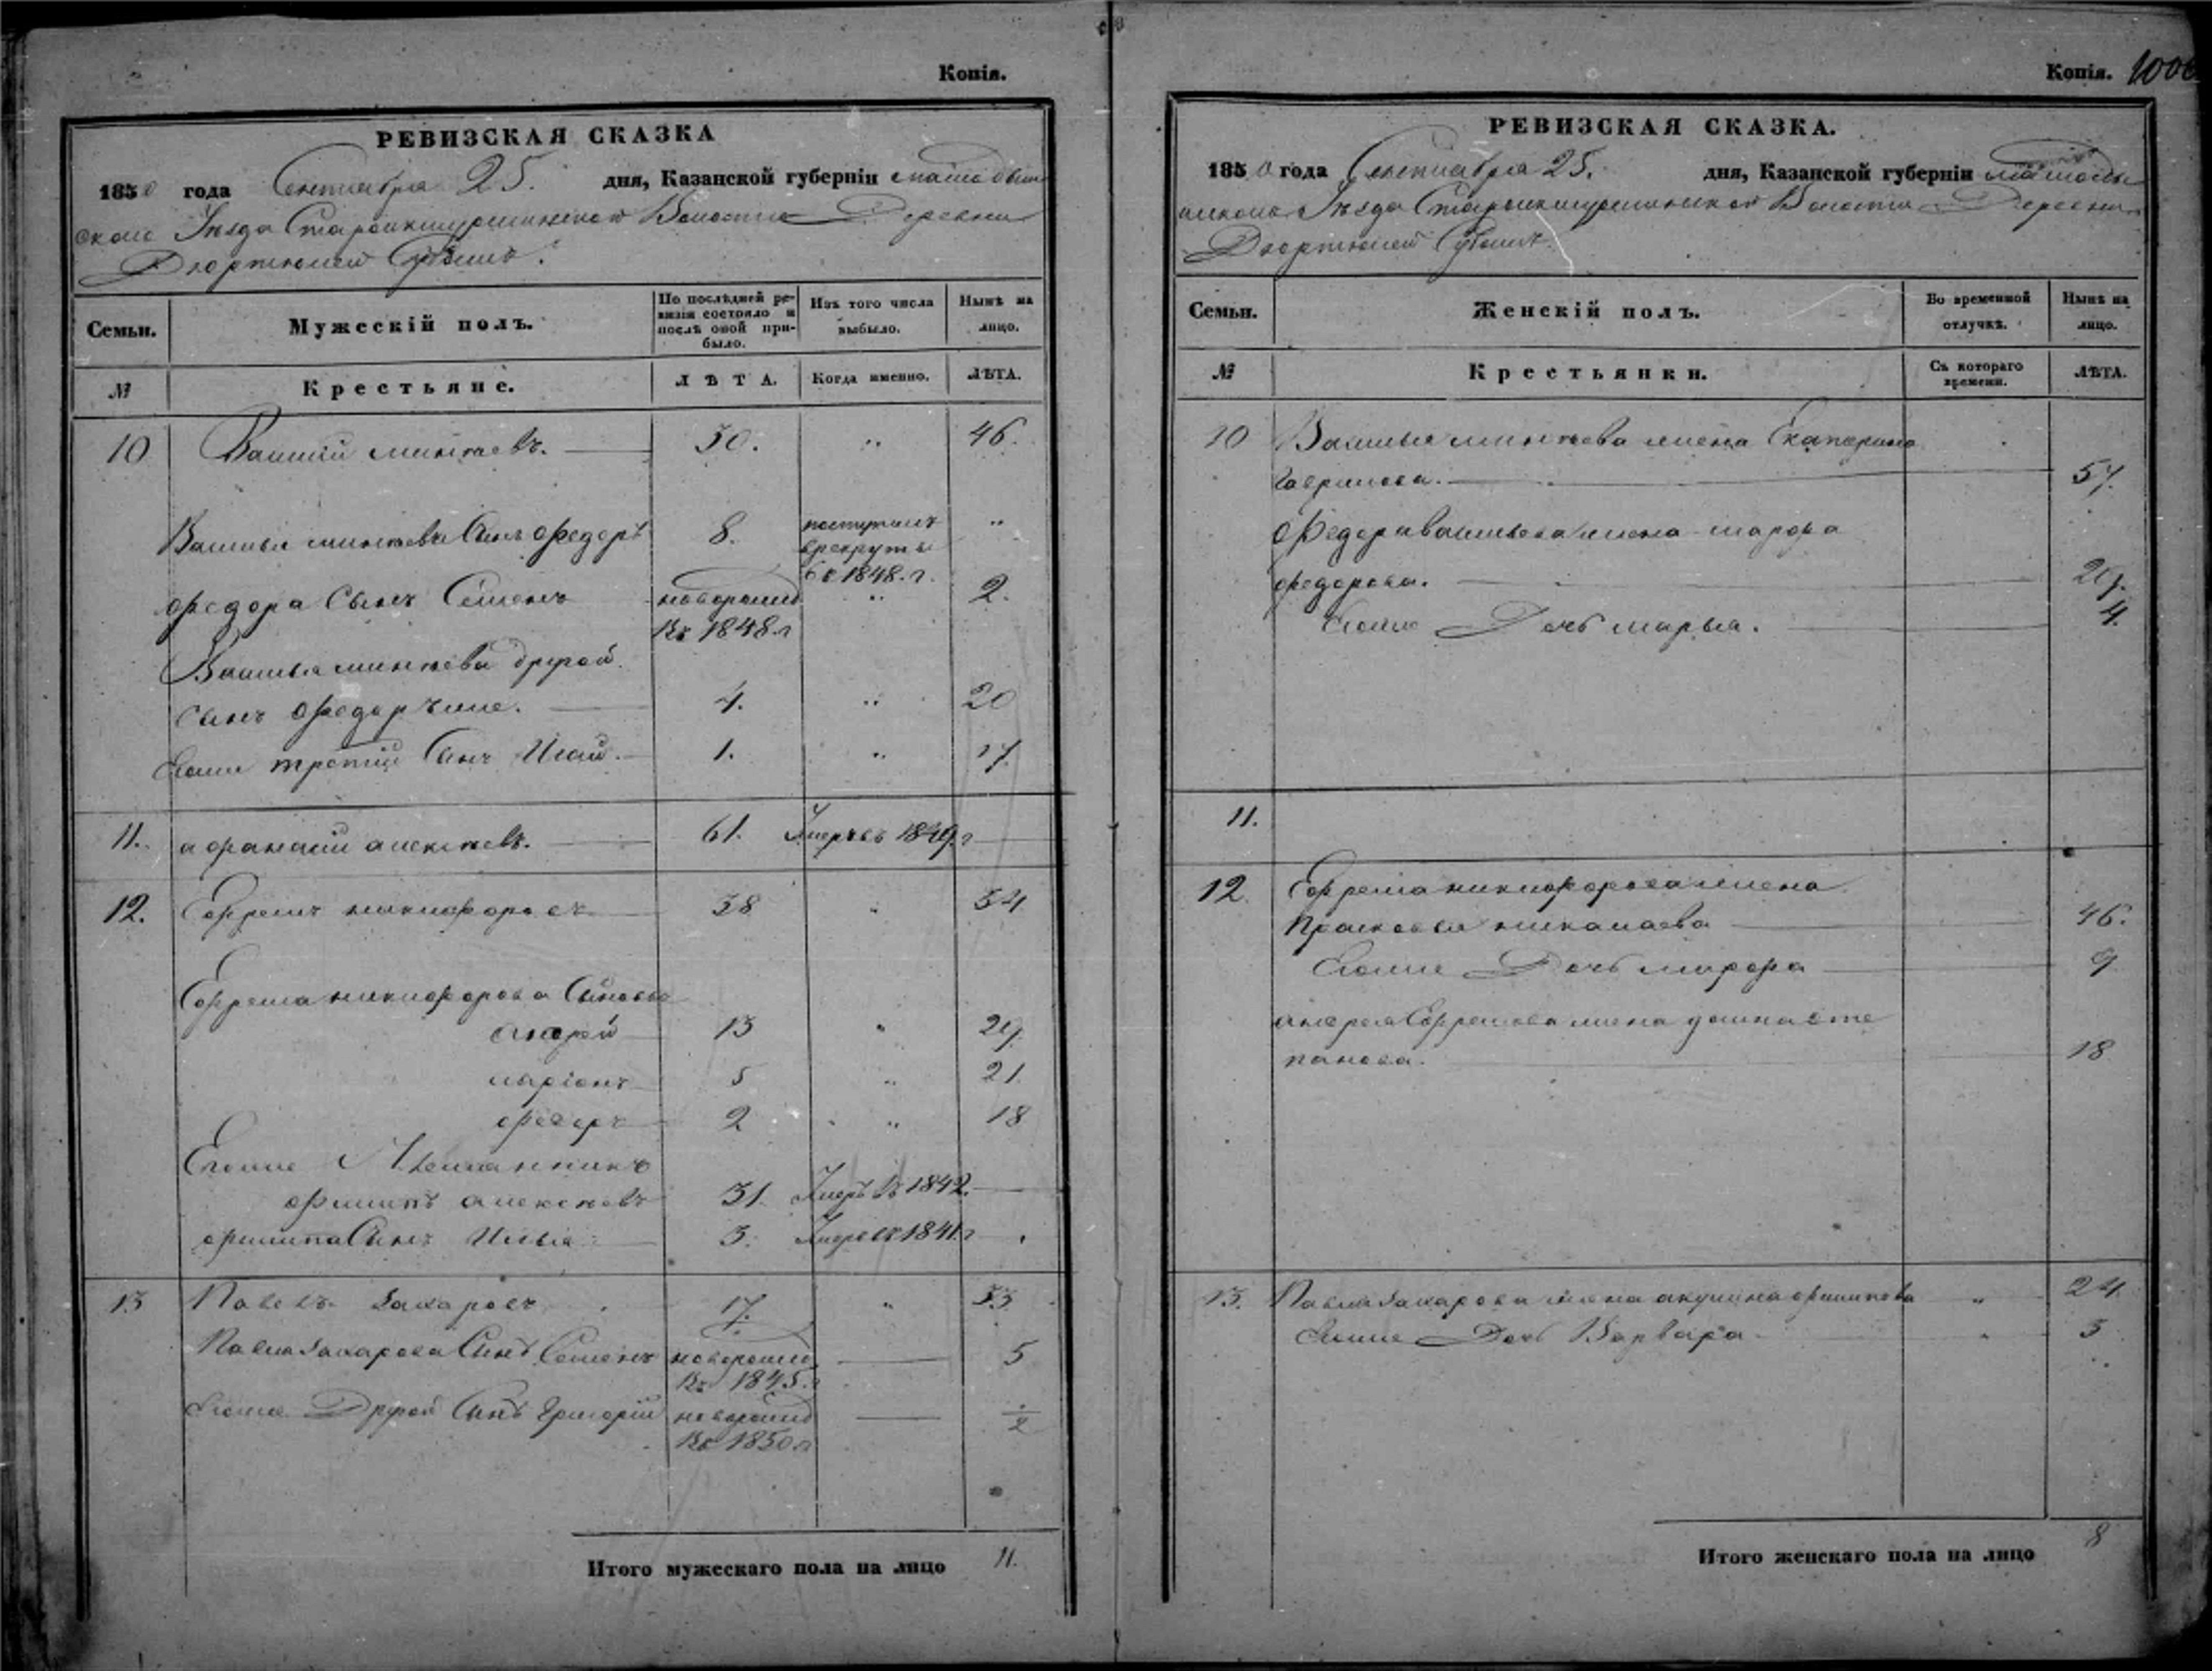 Копія.
РЕВИЗСКАЯ СКАЗКА
1850 года Сентября 25. дня, Казанской губерніи
Уѣзда Волости Деревни
Семьи. Мужескій полъ. По послѣдней ревизіи состояло и послѣ оной прибыло. Изъ того числа выбыло. Нынѣ на лицо.
№ Крестьяне. ЛѢТА. Когда именно. ЛѢТА.
10 Василій 30. " 46.
Василья Сынъ Федоръ 8. поступилъ "
врекруты
въ 1848. г.
Федора Сынъ Семенъ новорожд " 2.
Въ 1848. г
Василья другой
сынъ Федоръ же. 4. " 20
Егоже третій Сынъ 1. " 17.
11. афанасій алексѣевъ. 61. Умеръ въ 1849. г
12. Ефремъ никифоровъ 38 " 54
Ефрема никифорова Сыновья
андрей 13 " 29.
ларіонъ 5 " 21.
федоръ 2 " 18
Егоже Племянникъ
филипъ алексѣевъ 31. Умеръ въ 1842.
филипа Сынъ Илья 3. Умеръ въ 1841. г
13 Павелъ Захаровъ 17. " 33
Павла Захарова Сынъ Семенъ новорожд 5
Въ 1845. г
Егоже Другой Сынъ Григорій новорожд 1/2
Въ 1850. г
Итого мужескаго пола на лицо 11.
Копія.
РЕВИЗСКАЯ СКАЗКА.
1850 года Сентября 25. дня, Казанской губерніи
Уѣзда Волости Деревни
Семьи. Женскій полъ. Во временной отлучкѣ. Нынѣ на лицо.
№ Крестьянки. Съ котораго времени. ЛѢТА.
10 Василья жена Екатерина
Гаврилова. 57.
Федора Васильева жена марфа
федорова. 29.
Егоже Дочь марья. 4.
11.
12. Ефрема никифорова жена
Прасковья николаева 46.
Егоже Дочь марфа 9
андрея Ефремова жена сте
панова. 18
13. Павла Захарова жена акулина филипова " 24
Егоже Дочь Варвара " 3
Итого женскаго пола на лицо 8